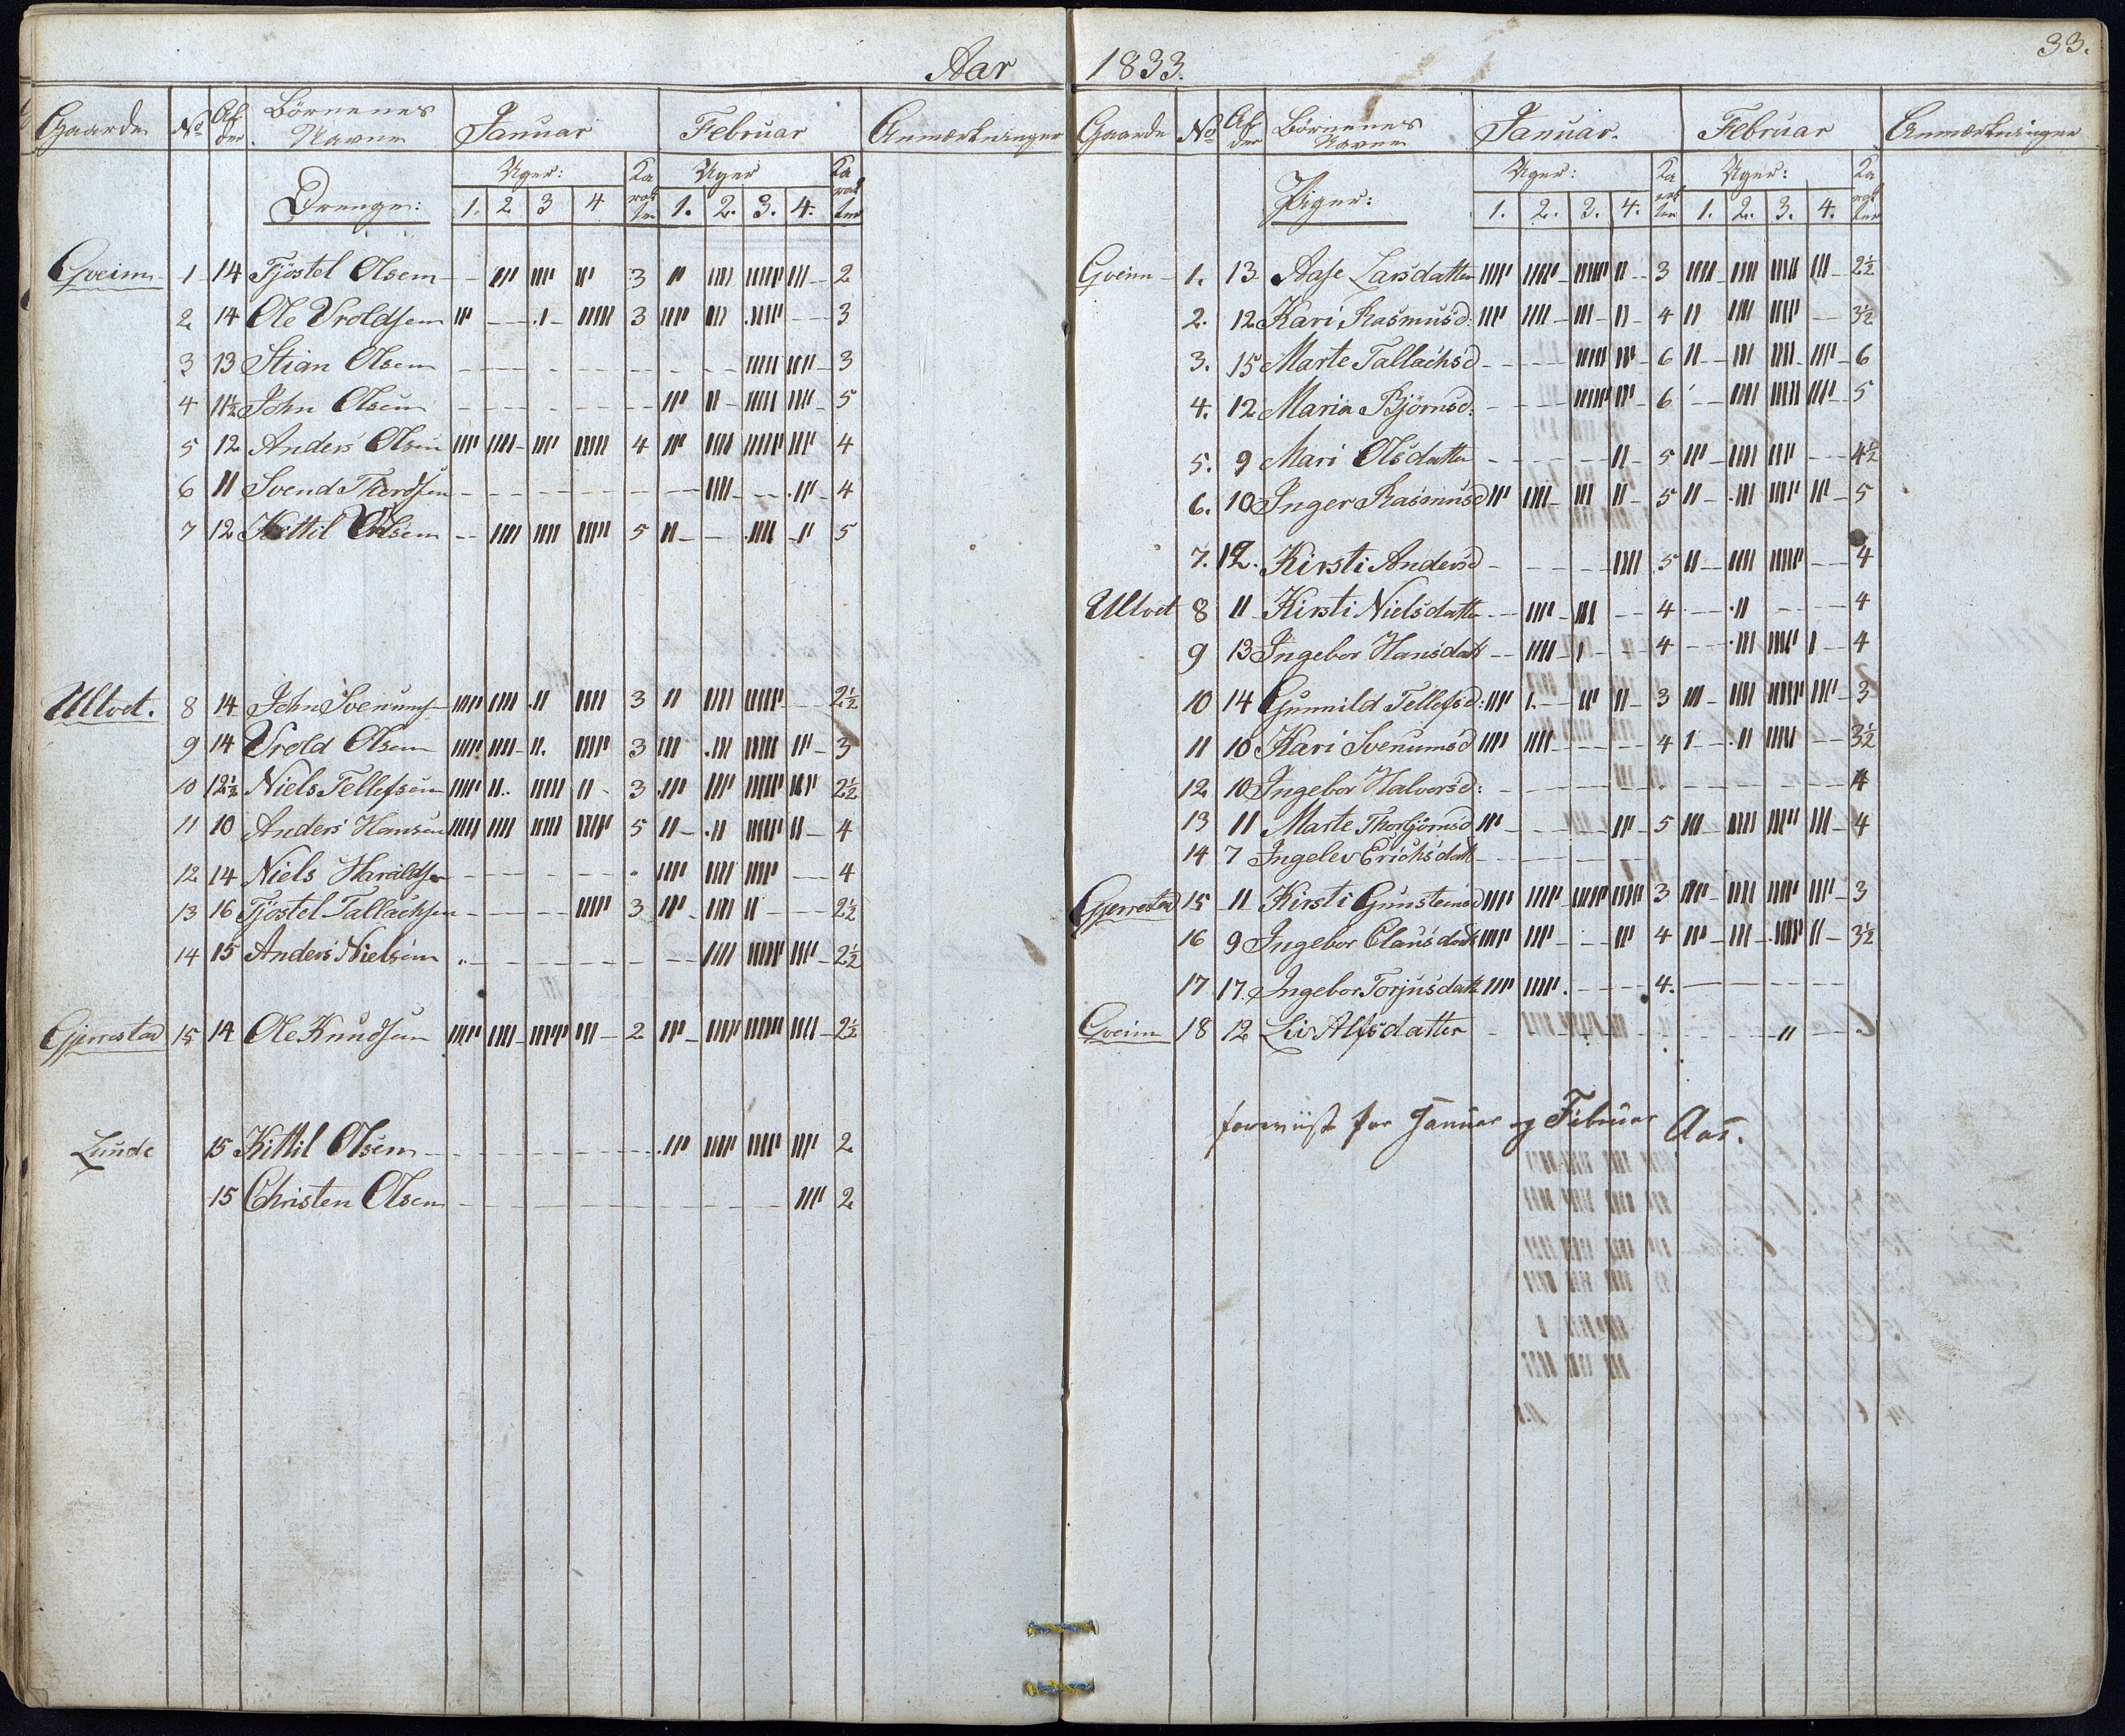 Aar 1833.
33.
Gaarde No Al der. Börnenes Navne Januar Februar Anmærkninger
Uger: Ka rak ter Uger Ka rak ter
Drenge: 1. 2 3 4 1. 2. 3. 4.
Qveim 1 14 Tjöstel Olsen - |||| |||| ||| 3 || |||| |||||| ||| - 2
2 14 Ole Vroldsen ||| - - . 1 - ||||| 3 |||| ||| . |||| - - 3
3 13 Stian Olsen - - - - - - - - ||||| |||| - 3
4 11½ John Olsen - - - - - - ||| || - ||||| |||| - 5
5 12 Anders Olsen |||| |||| - |||| ||||| 4 ||| |||| |||||| |||| 4
6 11 Svend Thordsen - - - - - - - |||| - - - . ||| - 4
7 12 Kittil Olsen - - |||| |||| ||||| 5 || - - . |||| - || 5
Ultvet. 8 14 John Svenungs |||| |||| . || |||| 3 || |||| ||||| - - 2½
9 14 Vrold Olsen |||| |||| - || . ||||| 3 ||| . ||| ||||| ||| - 3
10 12½ Niels Tellefsen |||| || . . ||||| || - 3 . ||| |||| |||||| |||| 2½
11 10 Anders Hansen ||||| |||| ||||| ||||| 5 || - . || |||||| || - 4
12 14 Niels Haraldsen - - - - - - |||| |||| ||||| - - 4
13 16 Tjöstel Tallachsen - - - - ||||| 3 ||| - |||| || - - - 2½
14 15 Anders Nielsen - - - - - - - - |||| |||||| |||| - 2½
Gjerrestad 15 14 Ole Knudsen |||| |||| - ||||| ||| - 2 ||| - ||||| |||||| |||| - 2½
Lunde 15 Kittil Olsen - - - - - - . ||| ||||| ||||| |||| 2
15 Christen Olsen - - - - - - - - - - |||| 2
Gaarde No Al der Börnenes Navne Januar. Februar Anmærkninger
Uger: Ka rak ter Uger: Ka rak ter
Piger: 1. 2. 3. 4. 1. 2. 3. 4.
Qveim - 1. 13 Aase Larsdatter |||| ||||| - |||||| || - - 3 |||| - |||| ||||| ||| - 2½
2. 12 Kari Rasmusd: |||| |||| - ||| - || - 4 || |||| ||||| - 3½
3. 15 Marte Tallachsd - - - - ||||| ||| - 6 || - ||| |||| - |||| - 6
4. 12 Maria Björnsd: - - - - |||||| ||| - 6 - - |||| ||||| |||| - 5
5. 9 Mari Olsdatter - - - - - || - 5 ||| - |||| |||| - - 4½
6. 10 Inger Rasmusd ||| |||| - ||| || - 5 || - . ||| ||||| ||| - 5
7. 12. Kirsti Andersd - - - - - |||| 5 || - |||| ||||| - - 4
Ultvet 8 11 Kirsti Nielsdatter - - |||| - ||| - - 4 - - . || - - - - 4
9 13 Ingebor Hansdatt - - |||| - 1 - - - 4 - - . ||| ||||| 1 - 4
10 14 Gunnild Tellefsd: ||| 1. - - || || - 3 ||| - |||| |||||| |||| - 3
11 10 Kari Svenumsd |||| |||| - - - - - 4 1 - - . || |||| - - 3½
12 10 Ingebor Halvorsd: - - - - - - - - - - 4
13 11 Marte Thorbjørnsd ||| - - - - - || - 5 ||| - |||| ||||| ||| - 4
14 7 Ingelev Erichsdatt - - - - - - -
Gjerrestad 15 11 Kirsti Gunsteinsd |||| ||||| - |||||| ||||| 3 ||| - |||| ||||| |||| - 3
16 9 Ingebor Clausdatt |||| |||| - - - ||| 4 ||| - ||| - . ||||| || - 3½
17 17. Ingebor Torjusdatt |||| |||| . - - - - 4. - - - - - -
Qveim 18 12 Liv Alfsdatter - - - - - - - - - || - -
foreviist for Januar og Februar Aas.